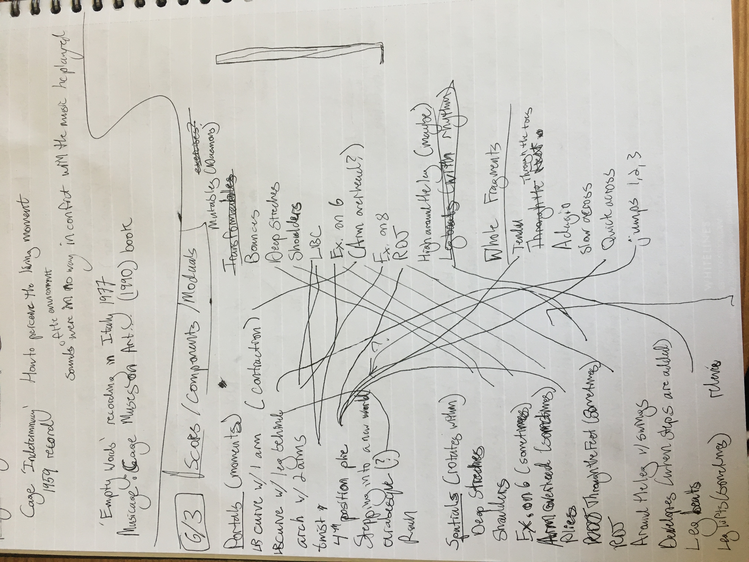 Cage Indeterminacy How to perceive the living moment
1959 record)
of the environment
Sounds were in no way in conflict with the music he played
'Empty Words' recording in Italy 1977
Musicage: Cage Muses on Art... (1990) book
6/3 Scores / components / Moduals
Portals (moments)
LB curve w/ 1 arm (contraction)
LB curve w/ leg behind
arch w/ 2 arms
twist
4th position plie
Stepping into a new world
arabesque (?)
Run
?
Spatials (rotates within)
Deep Stretches
Shoulders
Ex. on 6 (sometimes)
Arm overhead (sometimes)
Plies
Through the Feet (sometimes)
RDJ
Around the leg w/ swings
Develops (when steps are added)
Leg beats
Leg lifts (sometimes)
Mutables
Transformables
Bounces
Deep Stretches
Shoulders
LBC
Ex. on 6
(Arm overhead?)
Ex. on 8
RDJ
High around the leg (maybe)
Leg beats (with rhythm)
Whole Fragments
Tendu
Through the toes
Through the feet
Adagio
Slow across
Quick across
jumps 1, 2, 3